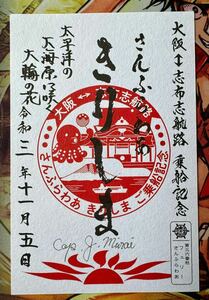 大阪⇔志布志航路 乗船記念
さんふらわあ
きりしま
太平洋の
大海原に咲く
大輪の花
令和三年十一月五日
大阪⇔志布志航路
さんふらわあ きりしま ご乗船記念
Cap. J. Mirai
さんふらわあ